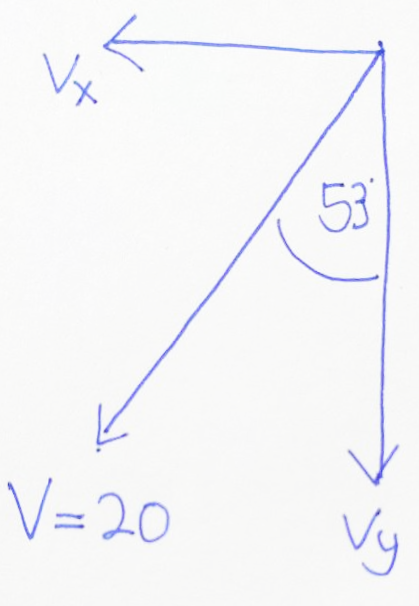 Vx
53°
V = 20
Vy